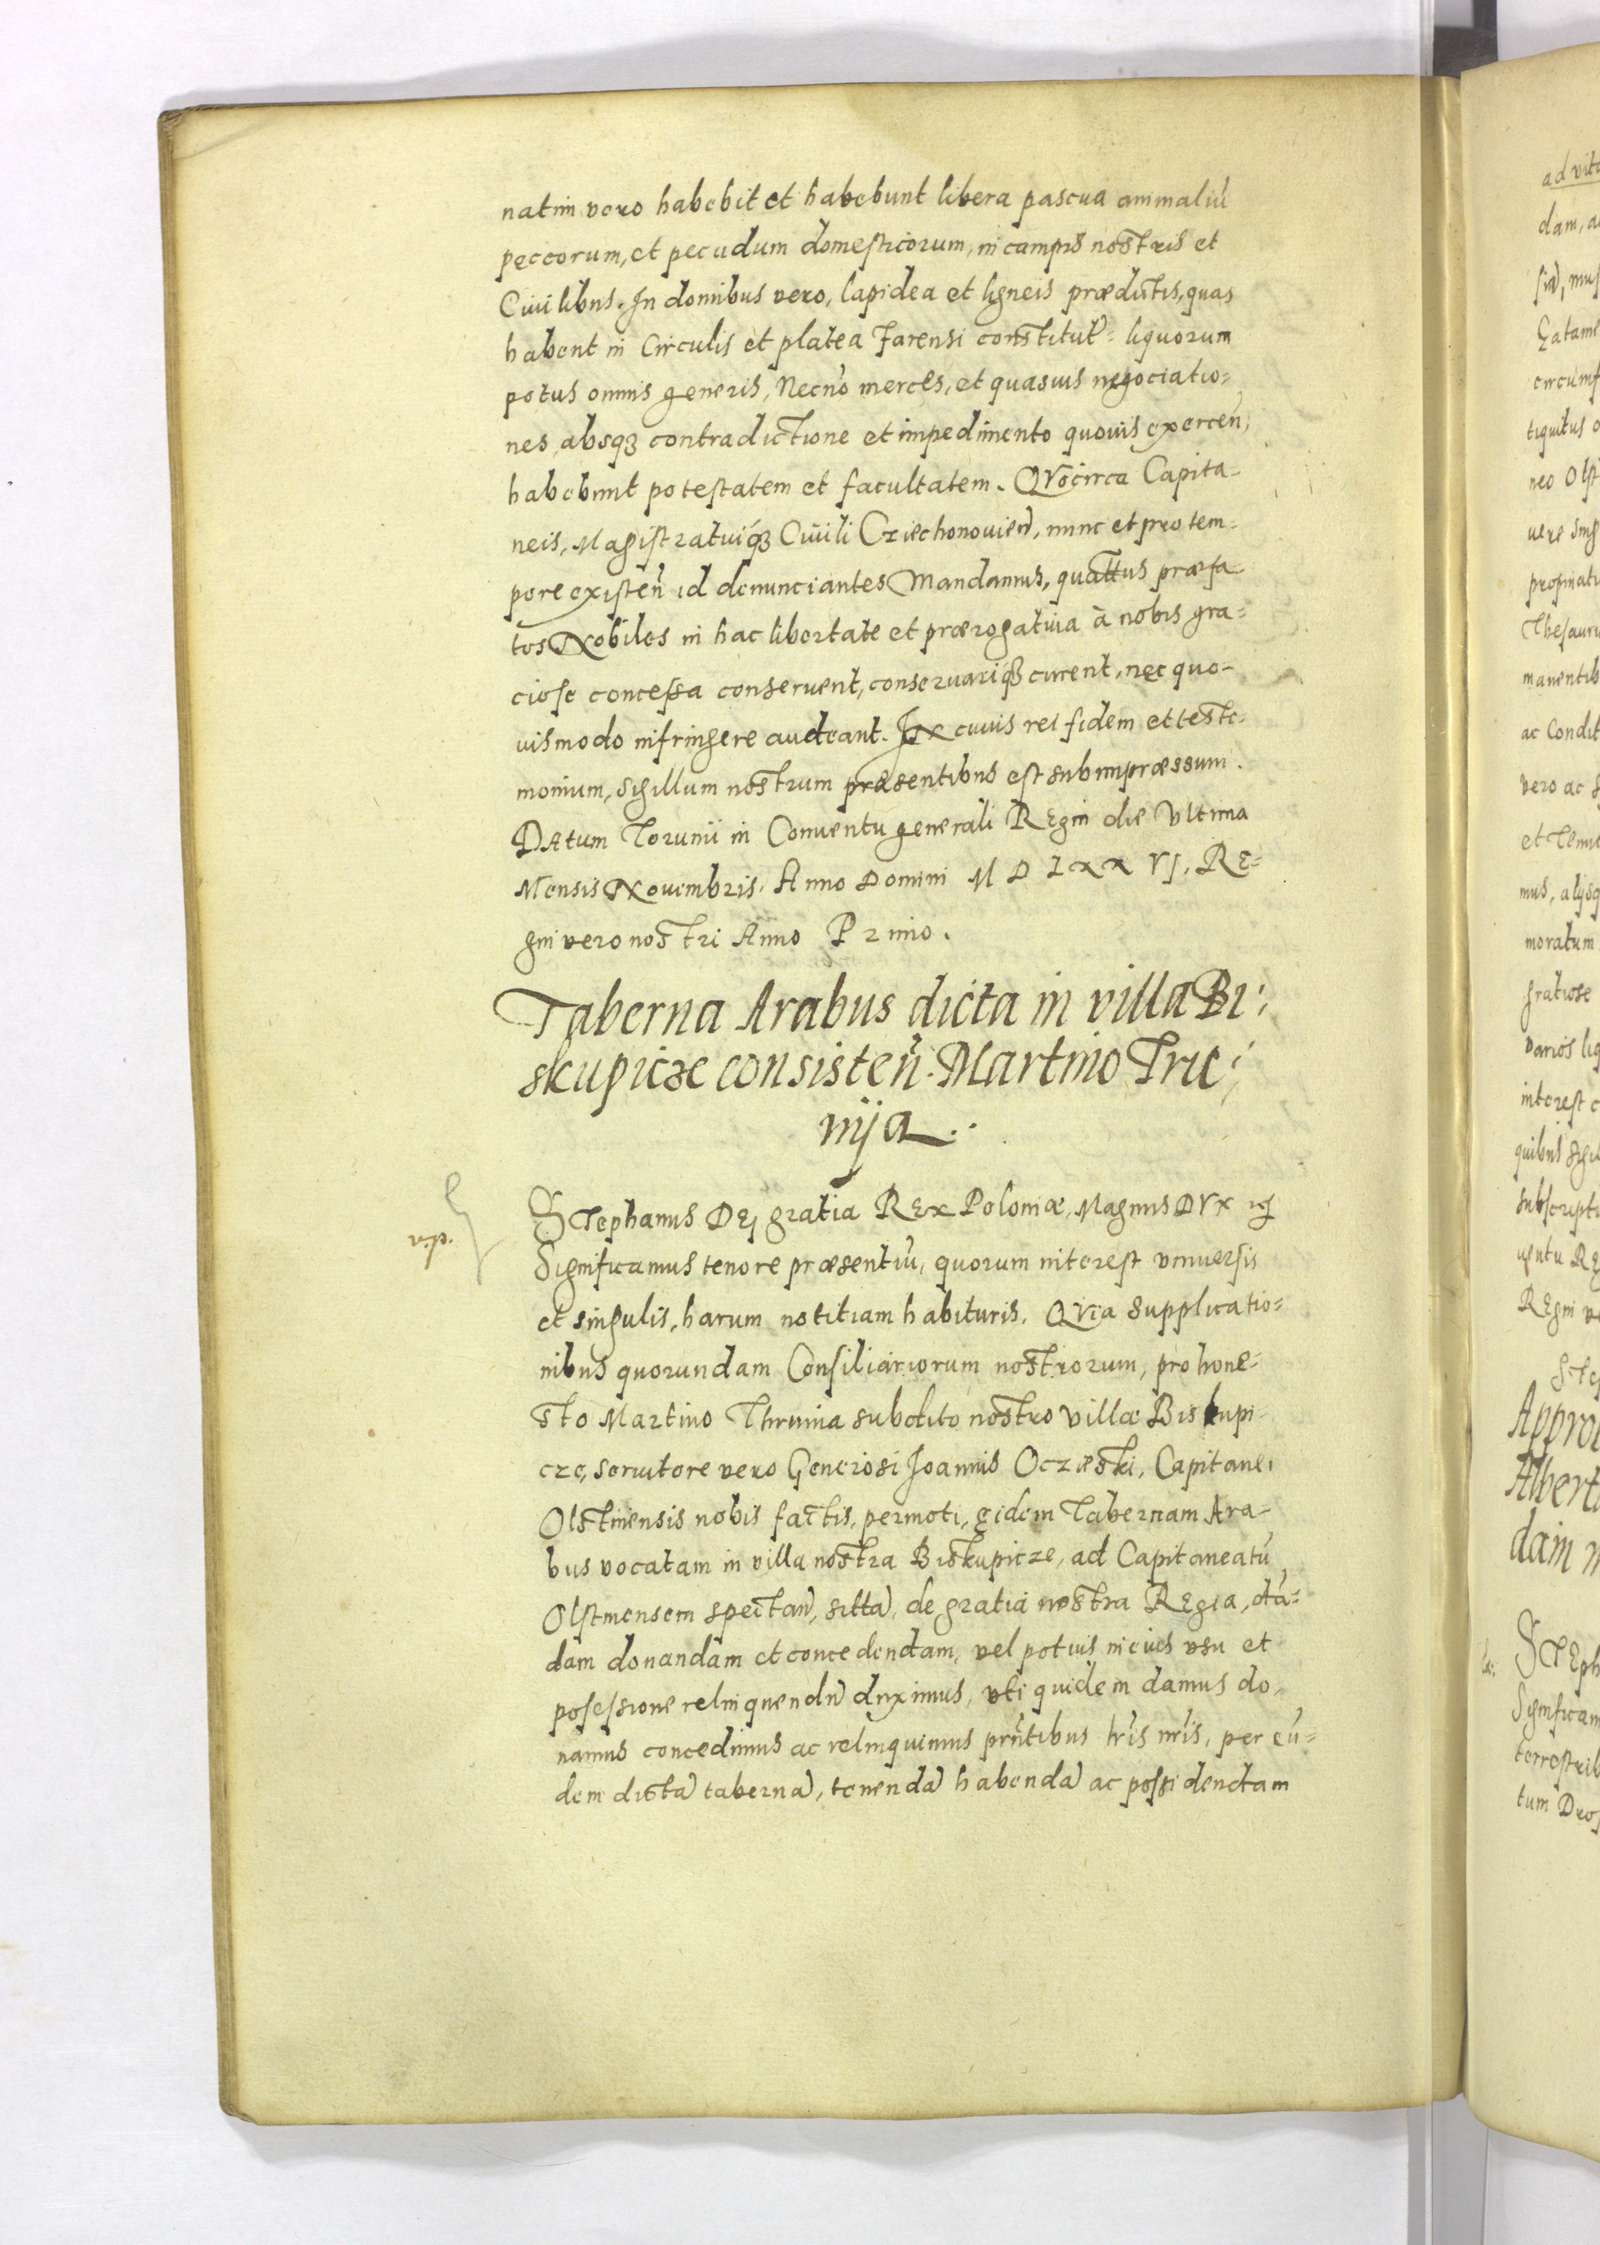 natim vero habebit et habebunt libera pascua animaliū
peccorum, et pecudum domesticorum, in campis nostris et
Ciuilibus. In domibus vero, lapidea et ligneis prædictis, quas
habent in Circulis et platea Farensi constitut= liquorum
potus omnis generis, Necnō merces, et quasuis negociatio=
nes, absqʒ contradictione et impedimento quouis exercen̄,
habebunt potestatem et facultatem. QVocirca Capita-
neis, Magistratuiqʒ Ciuili Cziechonouien̄, nunc et pro tem-
pore existen̄ id denunciantes Mandamus, quattus præfa
tos Nobiles in hac libertate et prærogatiua à nobis gra-
ciose concessa conseruent, conseruariqʒ curent, nec quo-
uismodo infringere audeant. In cuius rei fidem et testi-
monium, sigillum nostrum præsentibus est subimpræssum.
DAtum Torunii in Conuentu generali REgni die Vltima
Mensis Nouembris. Anno Domini M D LXX VI. RE=
gni vero nostri Anno Primo.
Taberna Arabus dicta in villa Bi:
skupicze consisten̄. Martino Truc:
nija.
STephanus DEj gratia REx Poloniæ, Magnus DVX
Significamus tenore præsentiū, quorum interest vniuersis
et singulis, harum notitiam habituris. QVia supplicatio=
nibus quorundam Consiliariorum nostrorum, pro hone-
sto Martino Thrunia subdito nostro villæ Biskupi
cze, seruitore vero Generosi Joannis Oczieski, Capitanei
Olstinensis nobis factis, permoti, eidem Tabernam Ara-
bus vocatam in villa nostra Biskupicze, ad Capitaneatū
Olstinensem spectan̄, sittā, de gratia nostra REgia, dā=
dam donandam et concedendam, vel potius in eius vsu et
posessione relinquendā duximus, vti quidem damus do-
namus concedimus ac relinquimus prn̄tibus lr̄is nr̄is, per eū=
dem dictā tabernā, tenendā habendā ac possidendam